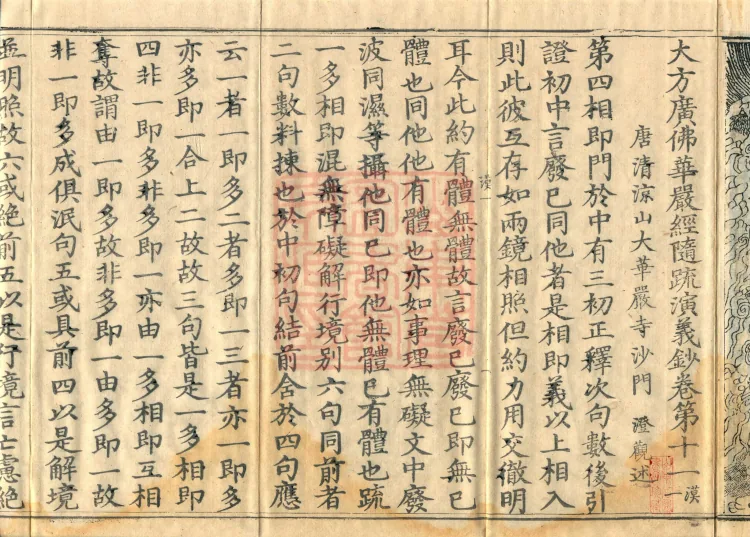 大方廣佛華嚴經隨疏演義鈔卷第十一 漠一
唐清涼山大華嚴寺沙門 澄觀述
第四相即門於中有三初正釋次句數後引
證初中言廢巳同他者是相即義以上相入
則此彼互存如兩鏡相照但約力用交徹明
漠一
耳今此約有體無體故言廢巳廢巳即無巳
體也同他他有體也亦如事理無礙文中廢
波同濕等攝他同巳即他無體巳有體也䟽
一多相即混無障礙解行境别六句同前者
二句數料揀也於中初句結前舍於四句應
云一者一即多二者多即一三者亦一即多
亦多即一合上二故故三句皆是一多相即
四非一即多非多即一亦由一多相即互相
奪故謂由一即多故非多即一由多即一故
非一即多成俱泯句五或具前四以是解境
並明照故六或絶前五以是行境言亡慮絶